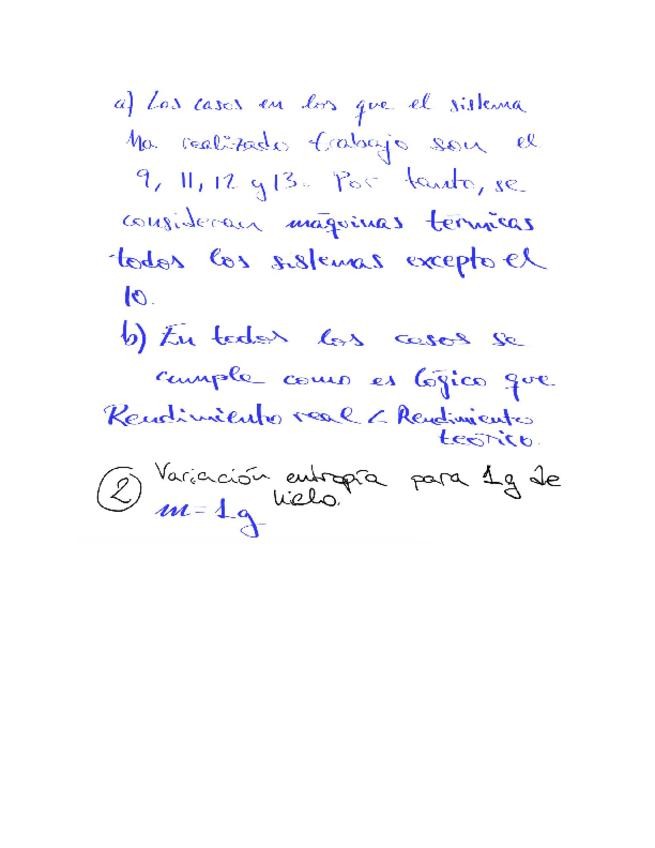 a) Los casos en los que el sistema
ha realizado trabajo son el
9, 11, 12 y 13. Por tanto, se
consideran máquinas térmicas
todos los sistemas excepto el
10.
b) En todos los casos se
cumple como es lógico que
Rendimiento real < Rendimiento
teórico.
② Variación entropía para 1g de
hielo.
m = 1g